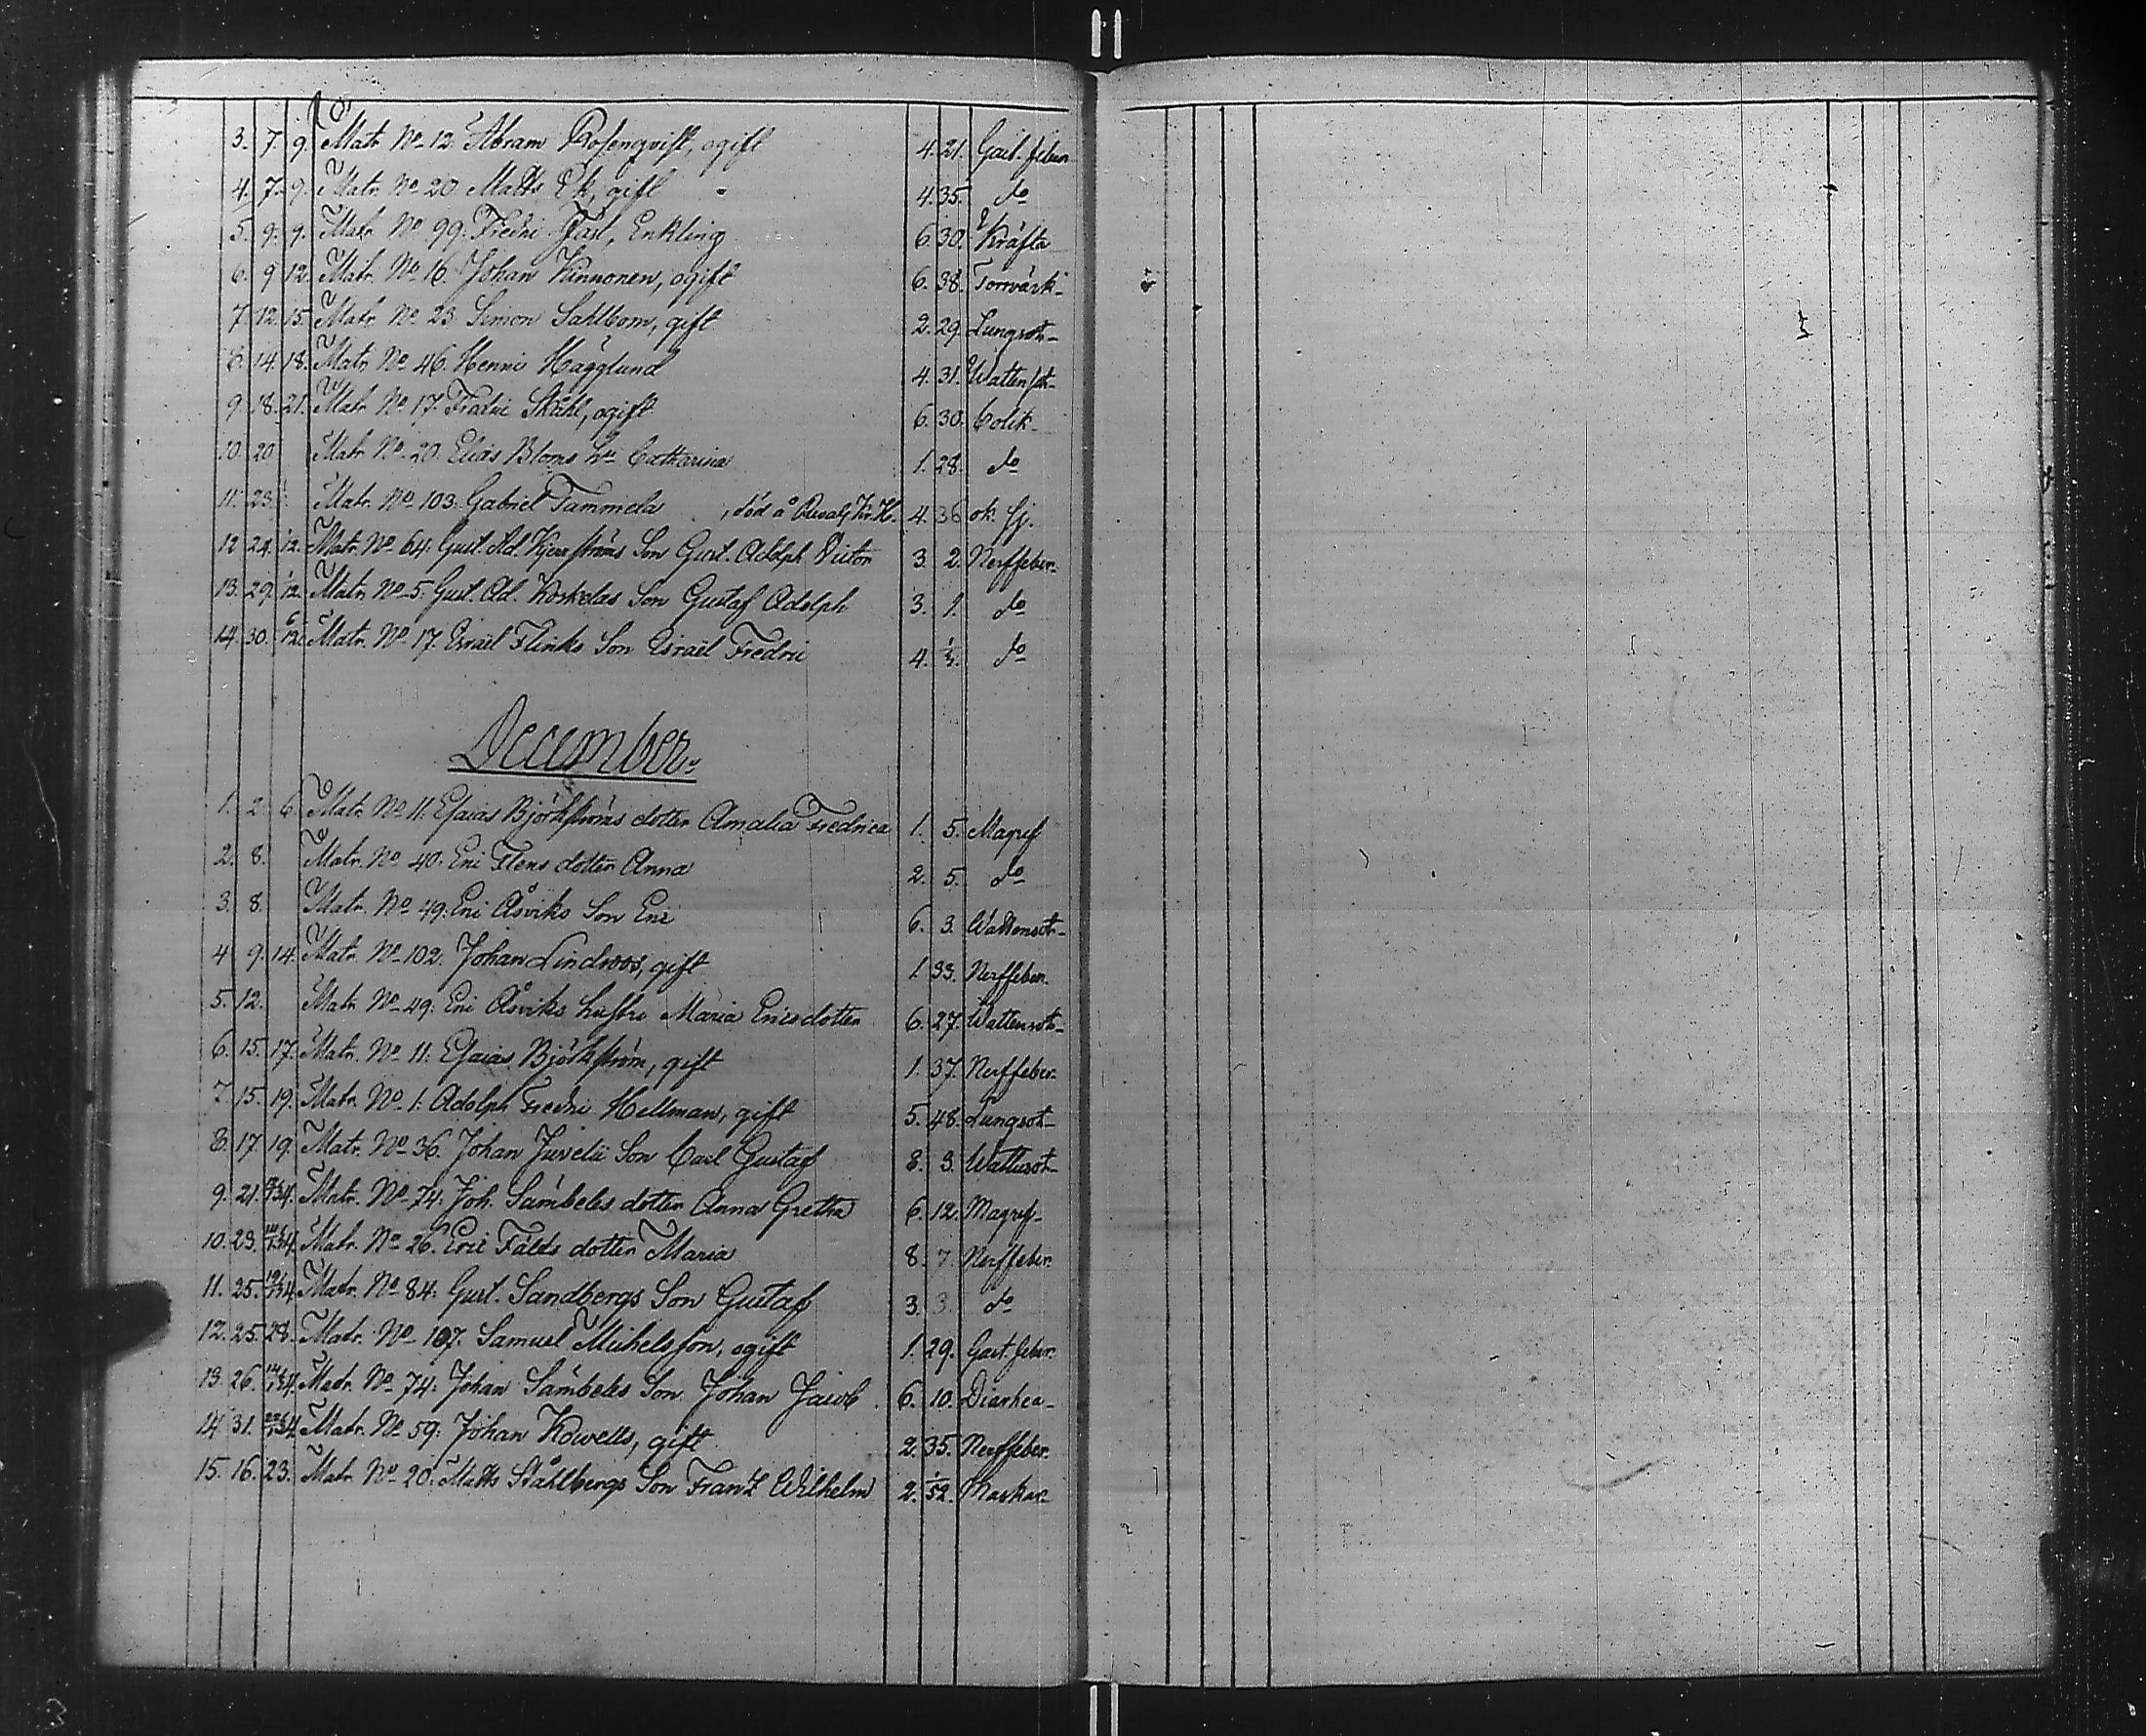 3. 7. 9. Matr. No 12. Abram Rosenqvist, ogift 4. 21. Gast. feber
4. 7. 9. Matr. No 20. Matts Ek, gift 4. 35. do
5. 9. 9. Matr. No 99. Fredric Fast, Enkling 6. 30. Kräfta
6. 9. 12. Matr. No 16. Johan Kinnonen, ogift 6. 38. Torrvärk
7. 12. 15. Matr. No 23. Simon Sahlbom, gift 2. 29. Lungsot
8. 14. 18. Matr. No 46. Henric Hägglund 4. 31. Wattensot
9. 18. 21. Matr. No 17. Fredric Ståhl, ogift 6. 30. Colik
10. 20. Matr. No 20. Elias Bloms hu Catharina 1. 28. do
11. 23. Matr. No 103. Gabriel Tammela, död å 4. 36. ok. sj.
12. 24. Matr. No 64. Gust. Ad. Son Gust. Adolph Victor 3. 2. Nerffeber
13. 29. Matr. No 5. Gust. Ad. Koskelas Son Gustaf Adolph 3. 1. do
14. 30. 6/12. Matr. No 17. Israël Flinks Son Israël Fredric 4. do
December.
1. 2. 6. Matr. No 11: Esaias Björkströms dotter Amalia Fredrica 1. 5. Magref
2. 8. Matr. No 40: Eric Flens dotter Anna 2. 5. do
3. 8. Matr. No 49: Eric Åsviks Son Eric 6. 3. Wattensot
4. 9. 14. Matr. No 102. Johan Lindroos, gift 1. 33. Nerffeber.
5. 12. Matr. No 49: Eric Åsviks hustru Maria Ericsdotter 6. 27. Wattensot
6. 15. 17. Matr. No 11: Esaias Björkström, gift 1. 37. Nerffeber
7. 15. 19. Matr. No 1: Adolph Fredric Hellman, gift 5. 48. Lungsot
8. 17. 19. Matr. No 36. Johan Juvelii Son Carl Gustaf 8. 3. Wattusot
9. 21. Matr. No 74: Joh. Sambeles dotter Anna Gretha 6. 12. Magref
10. 23. Matr. No 26. Eric Fälts dotter Maria 8. 7. Nerffeber.
11. 25. Matr. No 84: Gust. Sandbergs Son Gustaf 3. 3. do
12. 25. 28. Matr. No 107. Samuel Michelsson, ogift 1. 29. Gast. feber.
13. 26. Matr. No 74: Johan Sambeles Son Johan Jacob 6. 10. Diarhea
14. 31. Matr. No 59: Johan Kowells, gift 2. 35. Nerffeber.
15. 16. 23. Matr. No 20: Matts Ståhlbergs Son Frantz Wilhelm 2. 1/52. Maskar